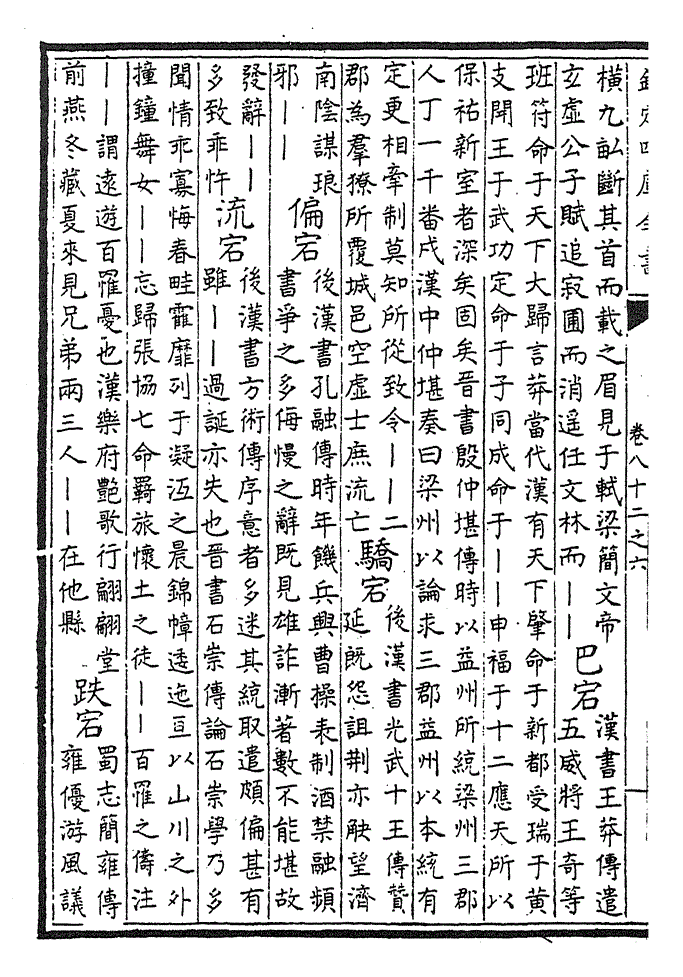 欽定四庫全書
卷八十二之六
橫九畝斷其首而載之眉見于軾梁簡文帝
玄虛公子賦追寂圃而消遥任文林而——
巴宕
漢書王莽傳遣
五威將王奇等
班符命于天下大歸言莽當代漢有天下肇命于新都受瑞于黄
支開王于武功定命于子同成命于——申福于十二應天所以
保祐新室者深矣固矣晉書殷仲堪傳時以益州所統梁州三郡
人丁一千番戍漢中仲堪奏曰梁州以論求三郡益州以本統有
定更相牽制莫知所從致令——二
郡為羣獠所覆城邑空虛士庶流亡
驕宕
後漢書光武十王傳贊
延既怨詛荆亦觖望濟
南陰謀琅
邪——
偏宕
後漢書孔融傳時年饑兵興曹操表制酒禁融頻
書爭之多侮慢之辭既見雄詐漸著數不能堪故
發辭——
多致乖忤
流宕
後漢書方術傳序意者多迷其統取遣頗偏甚有
雖——過誕亦失也晉書石崇傳論石崇學乃多
聞情乖寡悔春畦靃靡列于凝沍之晨錦幛逶迤亘以山川之外
撞鐘舞女——忘歸張協七命羇旅懷土之徒——百罹之儔注
——謂遠遊百罹憂也漢樂府艷歌行翩翩堂
前燕冬藏夏來見兄弟兩三人——在他縣
跌宕
蜀志簡雍傳
雍優游風議